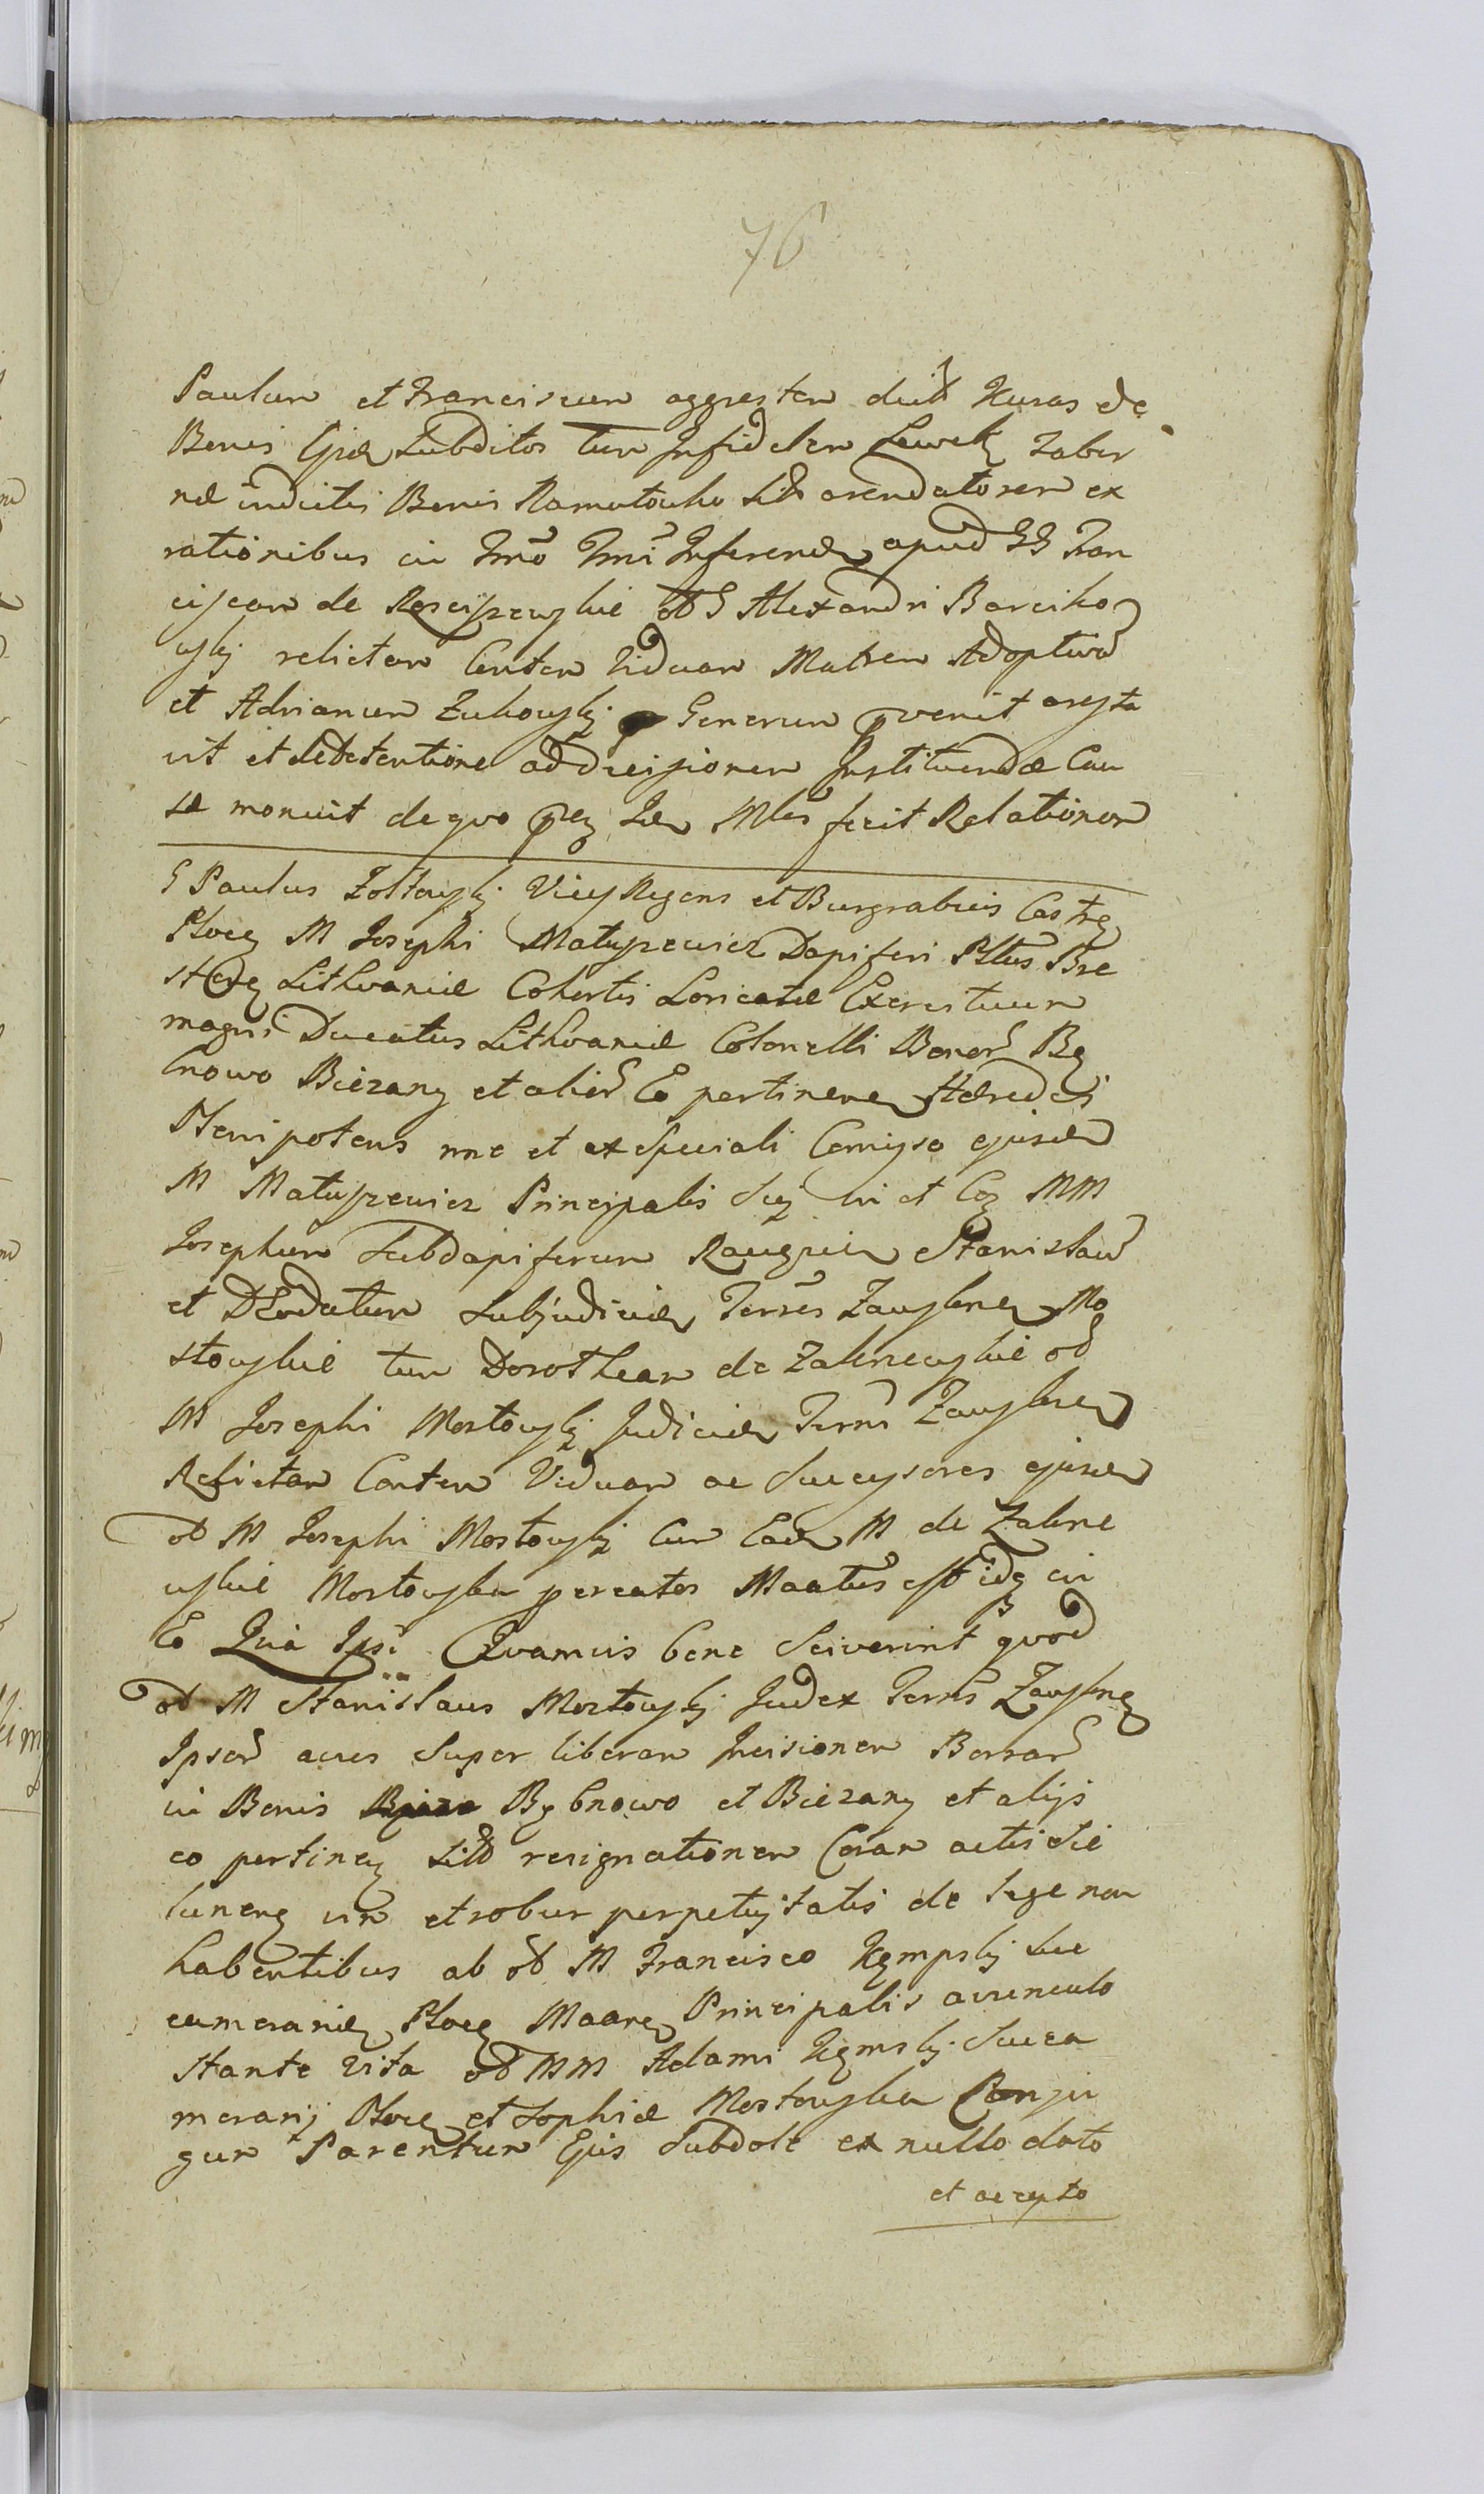 76
Paulum et Franciscum aggrestem dict Kuras de
Bonis Ejusd Subditos tum Infidelem Lewek Taber
næ in dictis Bonis Ramutowko Sit arendatorem ex
rationibus in Tmo Tmi Inferend apud GG Fran
ciscam de Rosciszewskie ob G Alexandri Barciko
wskj relictam Conten Viduam Matrem Adoptivam
et Adrianum Zukowskj Generum pvenit aresta
vit et de detentione ad decisionem Instituendæ Cau
sæ monuit de quo pq Idem Mles fecit Relationem
G Paulus Zoltowskj Vicesregens et Burgrabius Castren
Plocen M Josephi Matuszewicz Dapiferi Pltus Bre
sten Lithvaniæ Cohortis Loricatæ Exercituum
magni Ducatus Lithvaniæ Colonelli Bonor By
bnowo Biezany et alior Eo pertinen Hæredis
Plenipotens nne et ex speciali Comisso ejusdem
M Matuszewicz Principalis Sui in et Coq MM
Josephum Subdapiferum Stanislaum
et Deodatum Subjudicem Terrs Zawskren Mo
stowskie tum Dorotheam de Zalenewskie ob
M Josephi Mostowskj Judicis Terrs Zawskren
Relictam Conten Viduam ac Successores ejusdem
ob M Josephi Mostowskj Cum Ead M de Zalene
wskie Mostowska pcreatos Maatus est idq in
Eo Quia Ipsi Quamvis bene Sciverint quod
ob M Stanislaus Mostowskj Judex Terrs Zawskren
Ipsor avus Super liberam Incisionem Borrar
in Bonis Bybnowo et Biezany et alijs
eo pertinen Sit resignationem Coram actis Sie
lunen vim et robur perpetuitatis de lege non
habentibus ab ob M Francisco Kempskj Suc
camerario Plocen Maaren Principalis avunculo
stante vita ob MM Adami Kemskj Succa
merarij Plocen et Sophiæ Mostowska Conju
gum Parentum Ejus Subdole ex nullo dato
et accepto